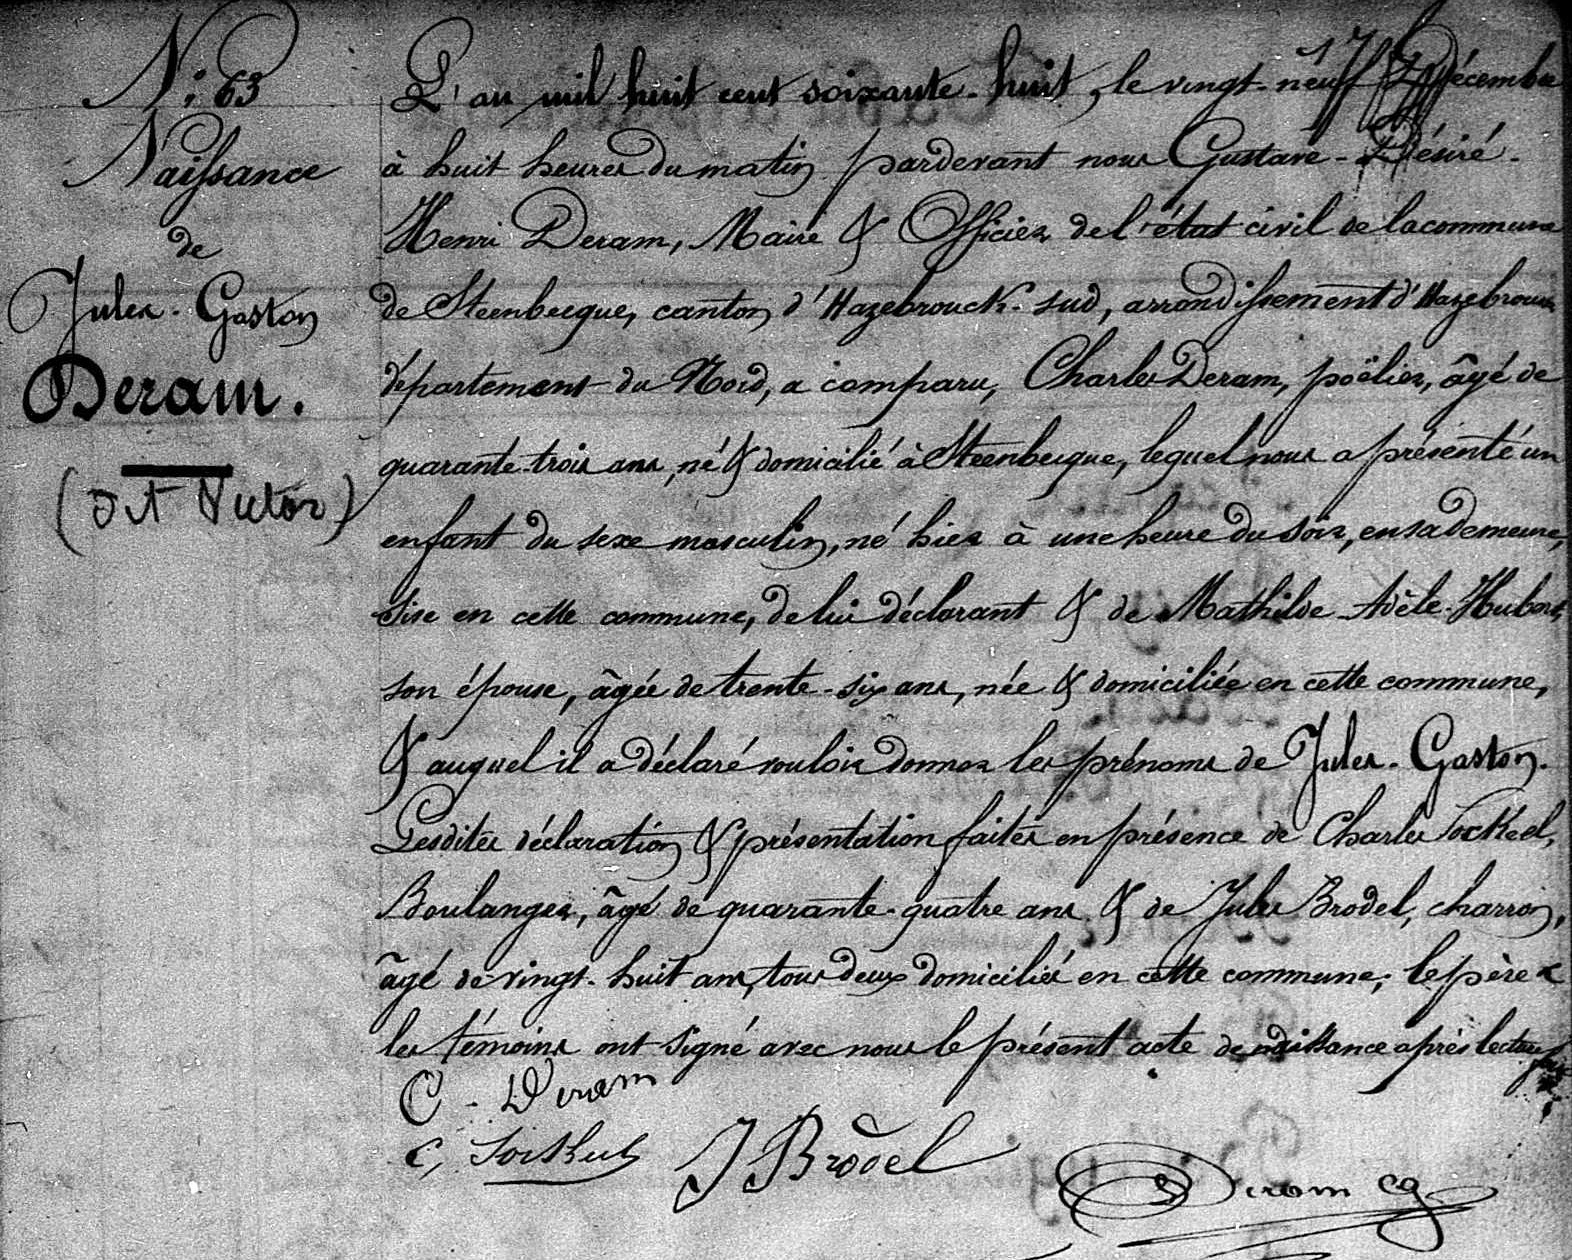 N.° 63
Naissance
de
Jules-Gaston
Deram.
(dit Victor)
L'an mil huit cent soixante-huit, le vingt-neuf Décembre
à huit heures du matin pardevant nous Gustave-Désiré-
Henri Deram, Maire & Officier de l'état civil de la commune
de Steenbecque, canton d'Hazebrouck-sud, arrondissement d'Hazebrouck
département du Nord, a comparu, Charles Deram, poëlier, âgé de
quarante-trois ans, né & domicilié à Steenbecque, lequel nous a présenté un
enfant du sexe masculin, né hier à une heure du soir, en sa demeure,
sise en cette commune, de lui déclarant & de Mathilde-Adèle-Hubert,
son épouse, âgée de trente-six ans, née & domiciliée en cette commune,
& auquel il a déclaré vouloir donner les prénoms de Jules-Gaston.
Lesdites déclaration & présentation faites en présence de Charles Sockeel,
Boulanger, âgé de quarante-quatre ans & de Jules Brodel, charron,
âgé de vingt-huit ans, tous deux domiciliés en cette commune; le père &
les témoins ont signé avec nous le présent acte de naissance après lecture
C. Deram
C, Sockeel
J Brodel
Deram